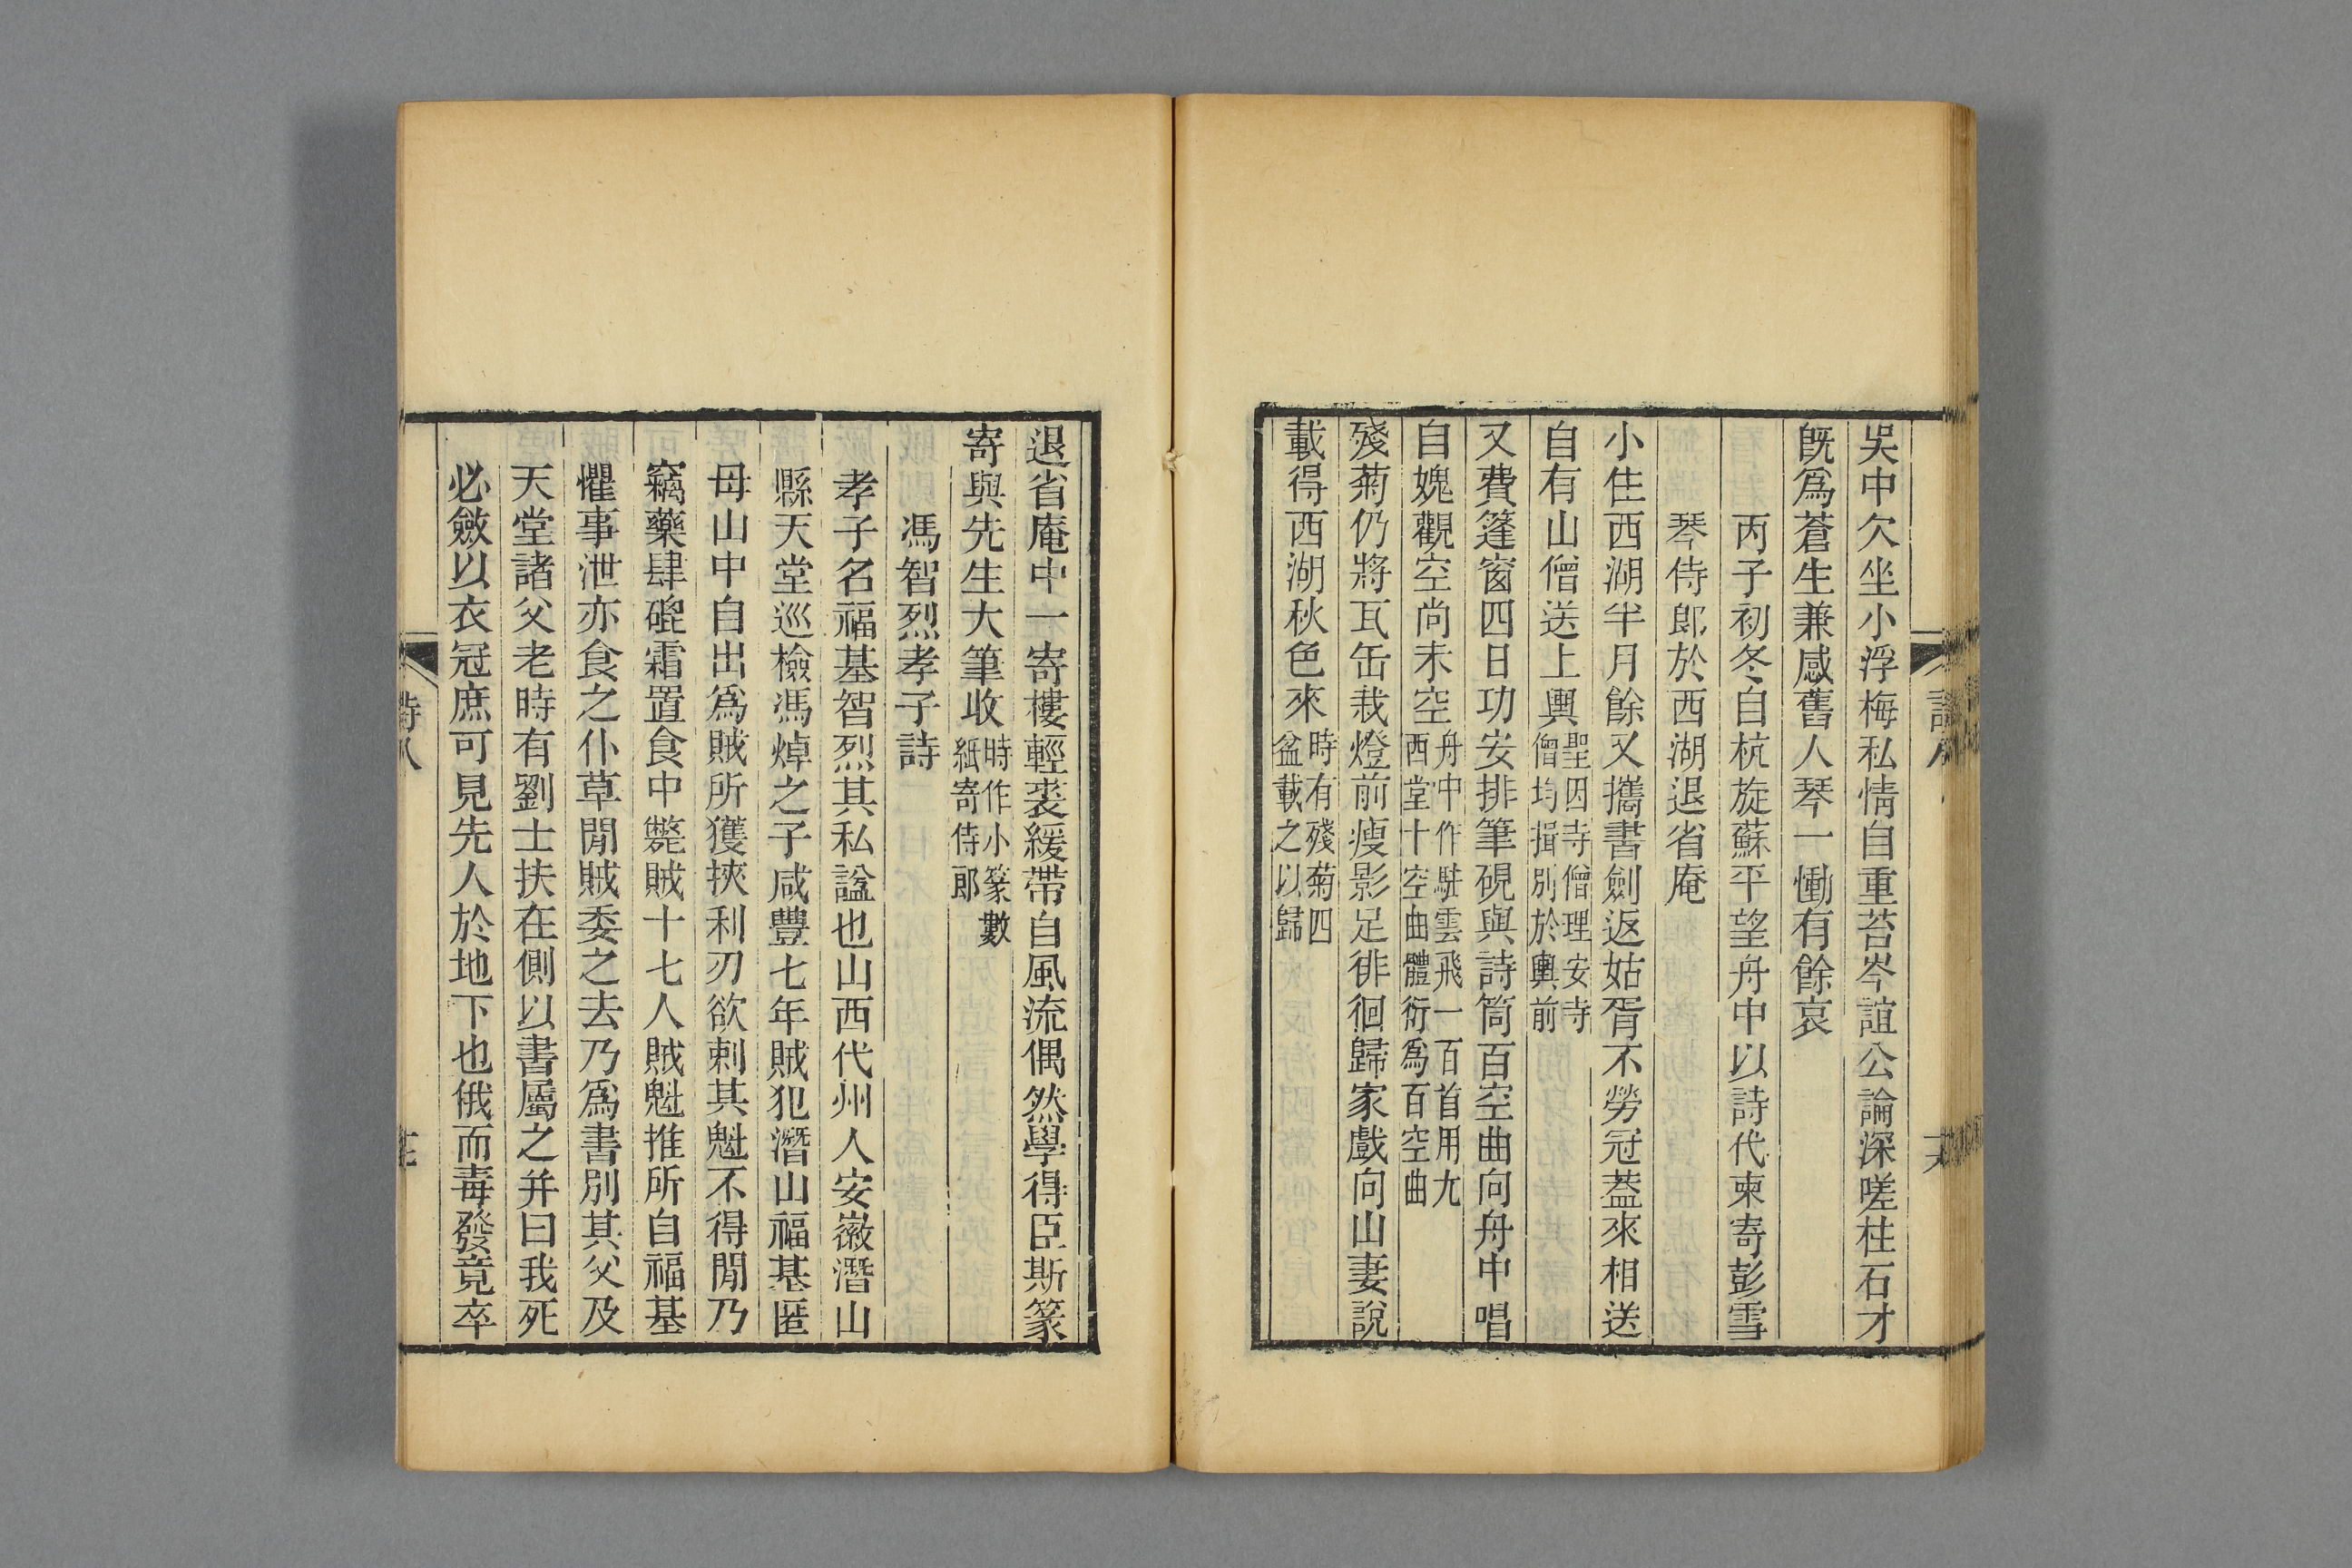 吳中欠坐小浮梅私情自重苔岑誼公論深嗟柱石才
旣爲蒼生兼感舊人琴一慟有餘哀
丙子初冬自杭旋蘇平望舟中以詩代柬寄彭雪
琴侍郎於西湖退省庵
小住西湖半月餘又攜書劍返姑胥不勞冠蓋來相送
自有山僧送上輿聖因寺僧理安寺
僧均揖別於輿前
又費篷窗四日功安排筆硯與詩筒百空曲向舟中唱
自媿觀空尚未空舟中作駐雲飛一百首用尢
西堂十空曲體衍爲百空曲
殘菊仍將瓦缶栽燈前瘦影足徘徊歸家戲向山妻說
載得西湖秋色來時有殘菊四
盆載之以歸
退省庵中一寄樓輕裘緩帶自風流偶然學得臣斯篆
寄與先生大筆收時作小篆數
紙寄侍郎
馮智烈孝子詩
孝子名福基智烈其私諡也山西代州人安徽潛山
縣天堂巡檢馮焯之子咸豐七年賊犯潛山福基匿
母山中自出爲賊所獲挾利刃欲剌其魁不得閒乃
竊藥肆磇霜置食中斃賊十七人賊魁推所自福基
懼事泄亦食之仆草閒賊委之去乃爲書別其父及
天堂諸父老時有劉士扶在側以書屬之并曰我死
必斂以衣冠庶可見先人於地下也俄而毒發竟卒
詩八